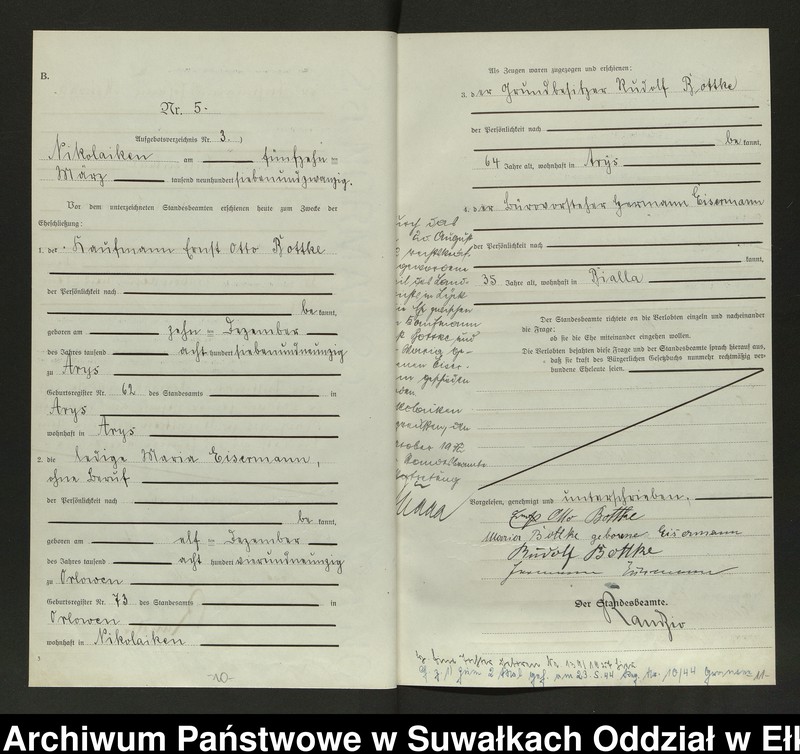 B.
Nr. 5.
Aufgebotsverzeichnis Nr. 3.)
Nikolaiken am fünfzehn =
März tausend neunhundert siebenundzwanzig.
Vor dem unterzeichneten Standesbeamten erschienen heute zum Zwecke der
Eheschließung:
1. der Kaufmann Ernst Otto Bottke
der Persönlichkeit nach
be kannt,
geboren am zehn = Dezember
des Jahres tausend acht hundert siebenundneunzig
zu Arys
Geburtsregister Nr. 62 des Standesamts in
Arys
wohnhaft in Arys
2. die ledige Maria Eisermann,
ohne Beruf
der Persönlichkeit nach
be kannt,
geboren am elf = Dezember
des Jahres tausend acht hundert vierundneunzig
zu Orlowen
Geburtsregister Nr. 73 des Standesamts in
Orlowen
wohnhaft in Nikolaiken
-10-
Als Zeugen waren zugezogen und erschienen:
3. der Grundbesitzer Rudolf Bottke
der Persönlichkeit nach
be kannt,
64 Jahre alt, wohnhaft in Arys
4. der Bürovorsteher Hermann Eisermann
der Persönlichkeit nach
kannt,
35 Jahre alt, wohnhaft in Bialla
Der Standesbeamte richtete an die Verlobten einzeln und nacheinander
die Frage:
ob sie die Ehe miteinander eingehen wollen.
Die Verlobten bejahten diese Frage und der Standesbeamte sprach hierauf aus,
daß sie kraft des Bürgerlichen Gesetzbuchs nunmehr rechtmäßig ver-
bundene Eheleute seien.
das
August
Kaufmann
Bottke und
Maria ge-
Eiser-
geschieden
Vorgelesen, genehmigt und unterschrieben.
Ernst Otto Bottke
Maria Bottke geborene Eisermann
Rudolf Bottke
Hermann Eisermann
Der Standesbeamte.
zum 2 Mal am 23.5.44 No. 10/44
Archiwum Państwowe w Suwałkach Oddział w Eł